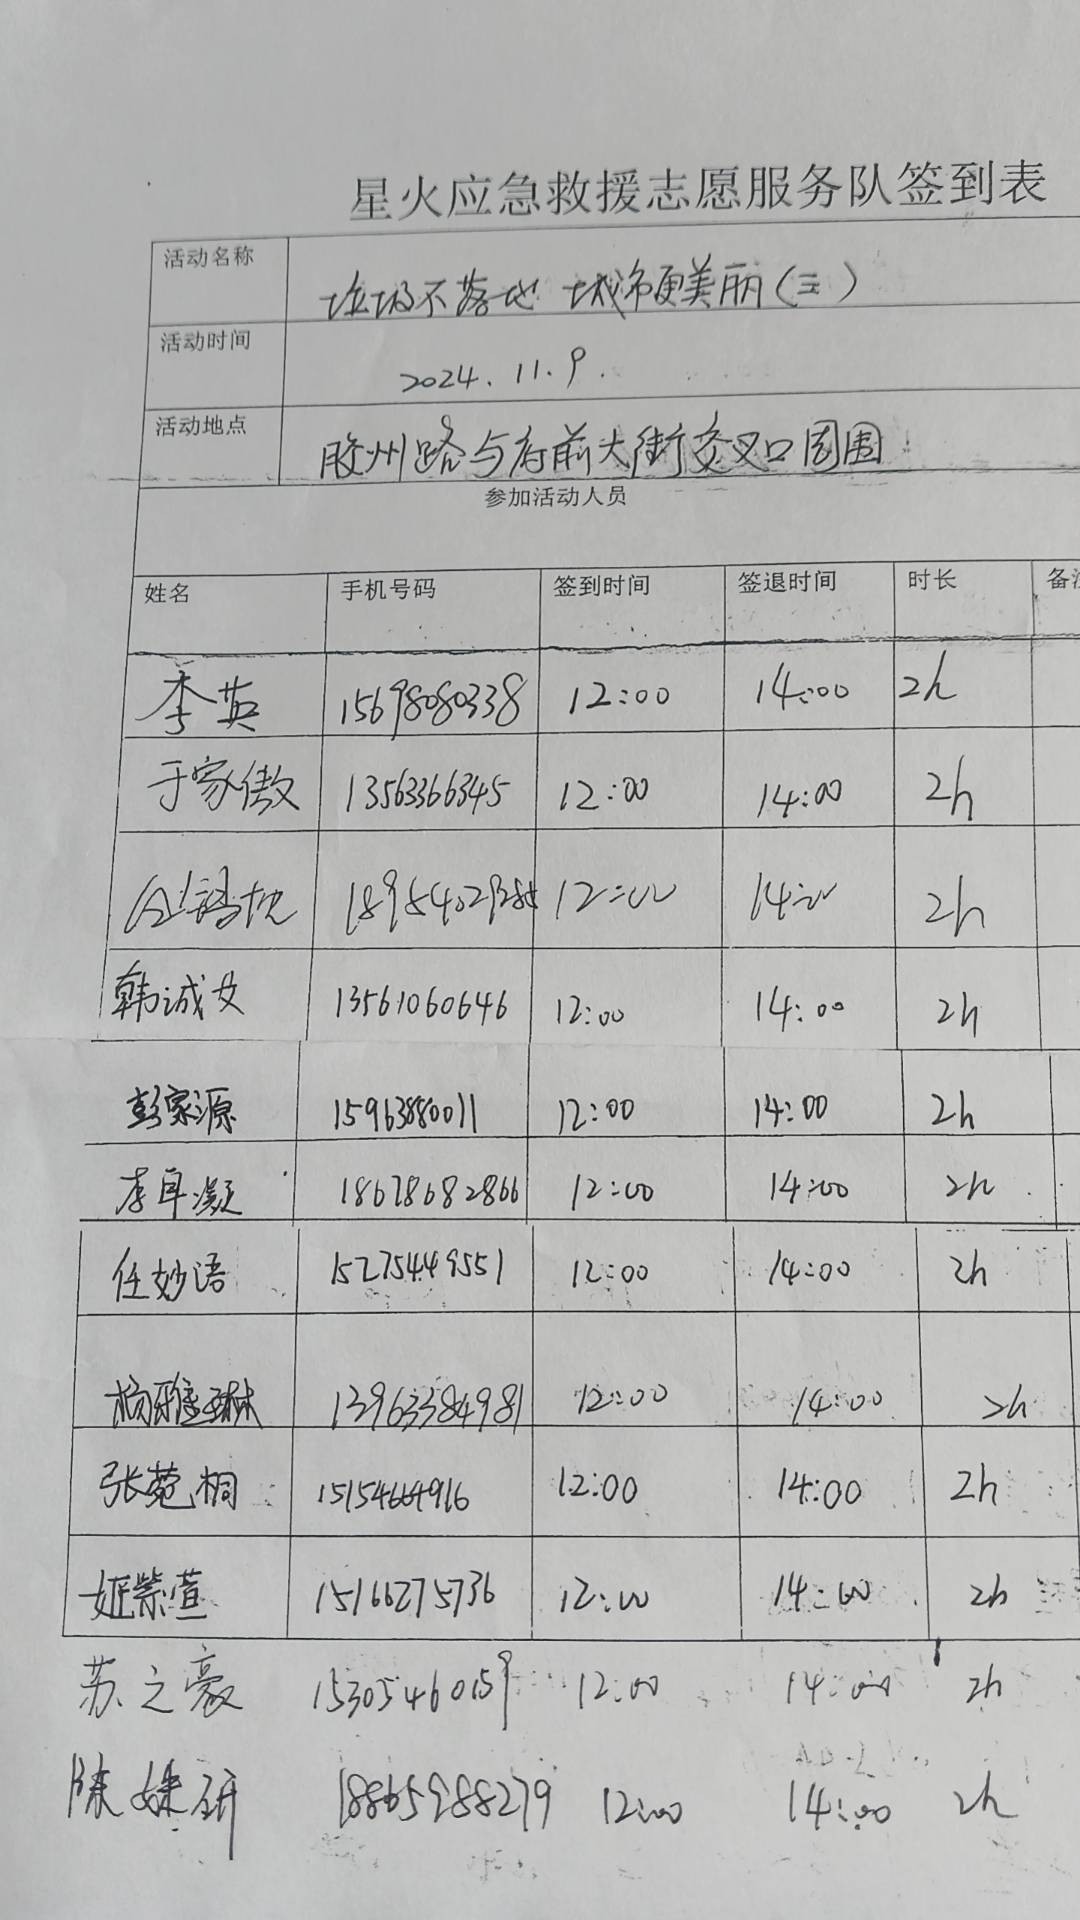 星火应急救援志愿服务队签到表
活动名称 垃圾不落地 城市更美丽(三)
活动时间 2024.11.9.
活动地点 胶州路与府前大街交叉口周围
参加活动人员
姓名 手机号码 签到时间 签退时间 时长 备注
李英 15698080338 12:00 14:00 2h
于家傲 13563366345 12:00 14:00 2h
12:00 14:00 2h
韩诚女 13561060646 12:00 14:00 2h
彭家源 15963880011 12:00 14:00 2h
李卓凝 18678682866 12:00 14:00 2h
任妙语 15275449551 12:00 14:00 2h
杨雅琳 13963384981 12:00 14:00 2h
张菀桐 15154664916 12:00 14:00 2h
姬紫萱 15166275736 12:00 14:00 2h
苏之豪 15305460159 12:00 14:00 2h
陈姝研 18865988279 12:00 14:00 2h